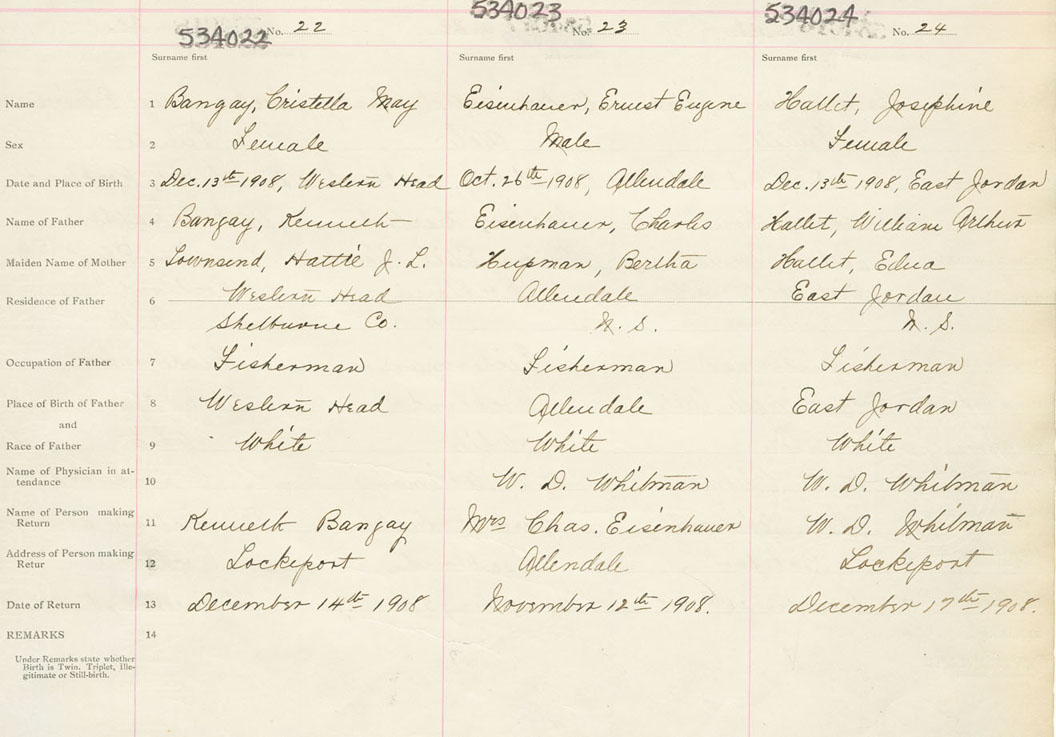 534022 No. 22
534023 No. 23
534024 No. 24
Surname first Surname first Surname first
Name 1 Bangay, Cristella May Eisenhauer, Ernest Eugene Hallet, Josephine
Sex 2 Female Male Female
Date and Place of Birth 3 Dec. 13th 1908, Western Head Oct. 26th 1908, Allendale Dec. 13th 1908, East Jordan
Name of Father 4 Bangay, Kenneth Eisenhauer, Charles Hallet, William Arthur
Maiden Name of Mother 5 Townsend, Hattie J. L. Hupman, Bertha Hallet, Edna
Residence of Father 6 Western Head Allendale East Jordan
Shelburne Co. N. S. N. S.
Occupation of Father 7 Fisherman Fisherman Fisherman
Place of Birth of Father 8 Western Head Allendale East Jordan
and
Race of Father 9 White White White
Name of Physician in at-
tendance 10 W. D. Whitman W. D. Whitman
Name of Person making
Return 11 Kenneth Bangay Mrs Chas. Eisenhauer W. D. Whitman
Address of Person making
Retur 12 Lockeport Allendale Lockeport
Date of Return 13 December 14th 1908 November 12th 1908. December 17th 1908.
REMARKS 14
Under Remarks state whether
Birth is Twin. Triplet, Ille-
gitimate or Still-birth.